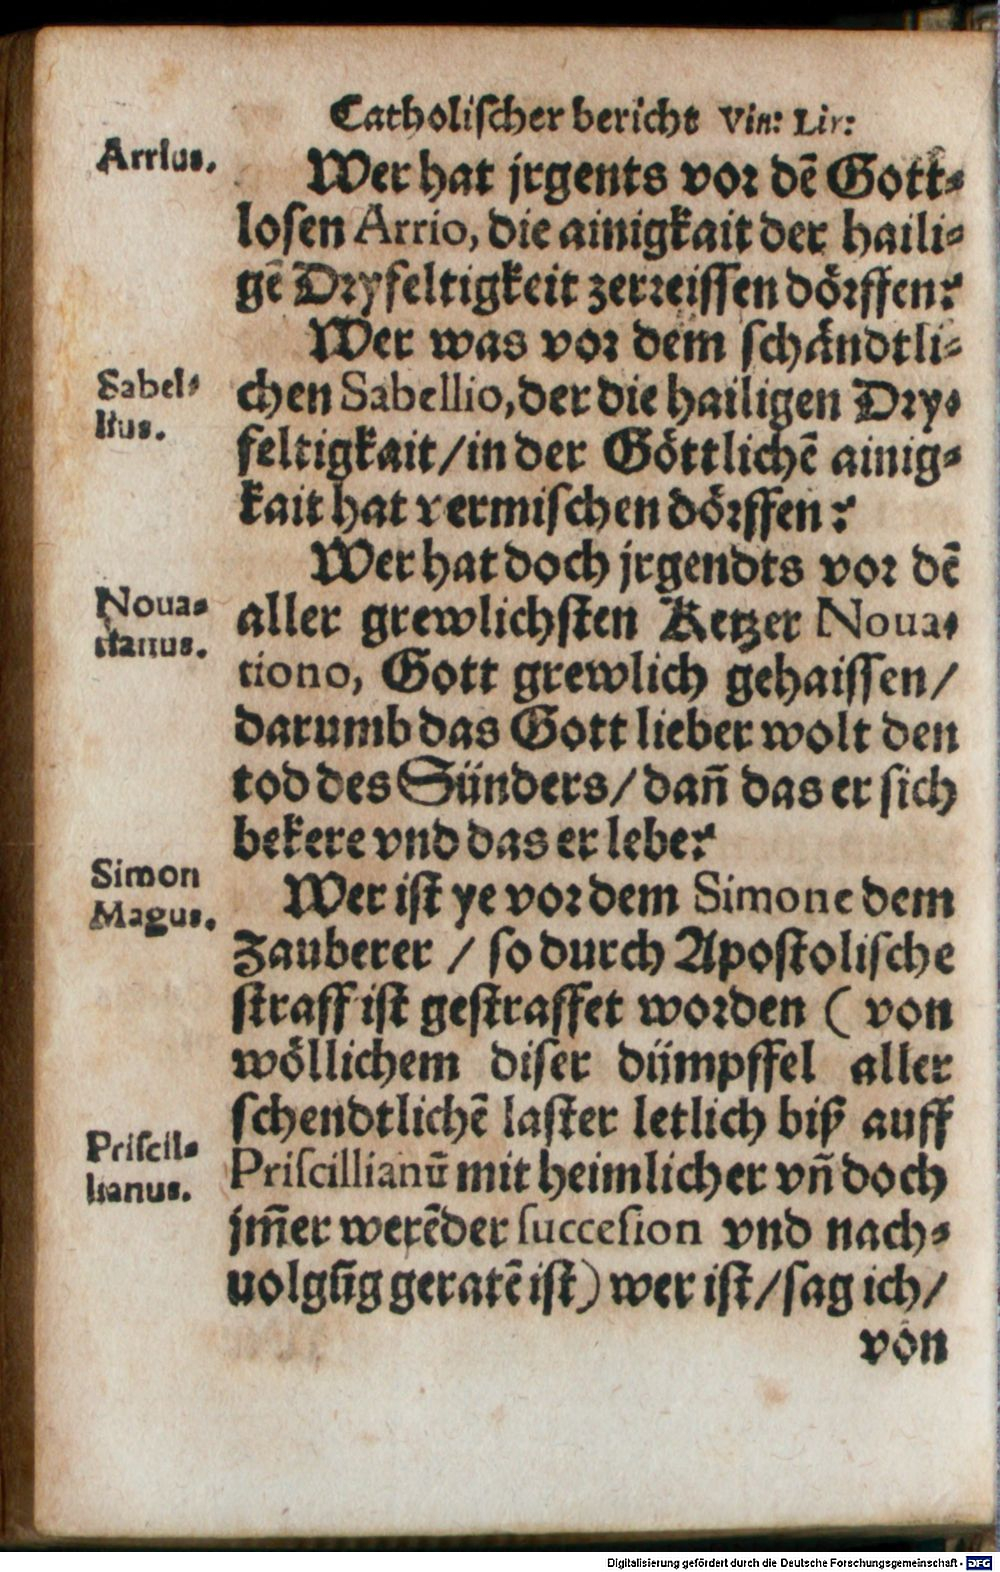 Catholischer bericht Vin: Lir:
Arrius.
Wer hat jrgents vor dē Gott⸗
losen Arrio, die ainigkait der haili⸗
gē Dryfeltigkeit zerreissen dörffen?
Wer was vor dem schändtli⸗
Sabel⸗
lius.
chen Sabellio, der die hailigen Dry⸗
feltigkait / in der Göttlichē ainig⸗
kait hat vermischen dörffen?
Wer hat doch jrgendts vor dē
Noua⸗
tianus.
aller grewlichsten Ketzer Noua⸗
tiono, Gott grewlich gehaissen /
darumb das Gott lieber wolt den
tod des Sünders / dañ das er sich
bekere vnd das er lebe?
Simon
Magus.
Wer ist ye vor dem Simone dem
Zauberer / so durch Apostolische
straff ist gestraffet worden ( von
wöllichem diser dümpffel aller
schendtlichē laster letlich biß auff
Priscil⸗
lianus.
Priscillianū mit heimlicher vñ doch
jm̄er werēder succesion vnd nach⸗
uolgūg geratē ist) wer ist / sag ich /
von
Digitalisierung gefördert durch die Deutsche Forschungsgemeinschaft - DFG